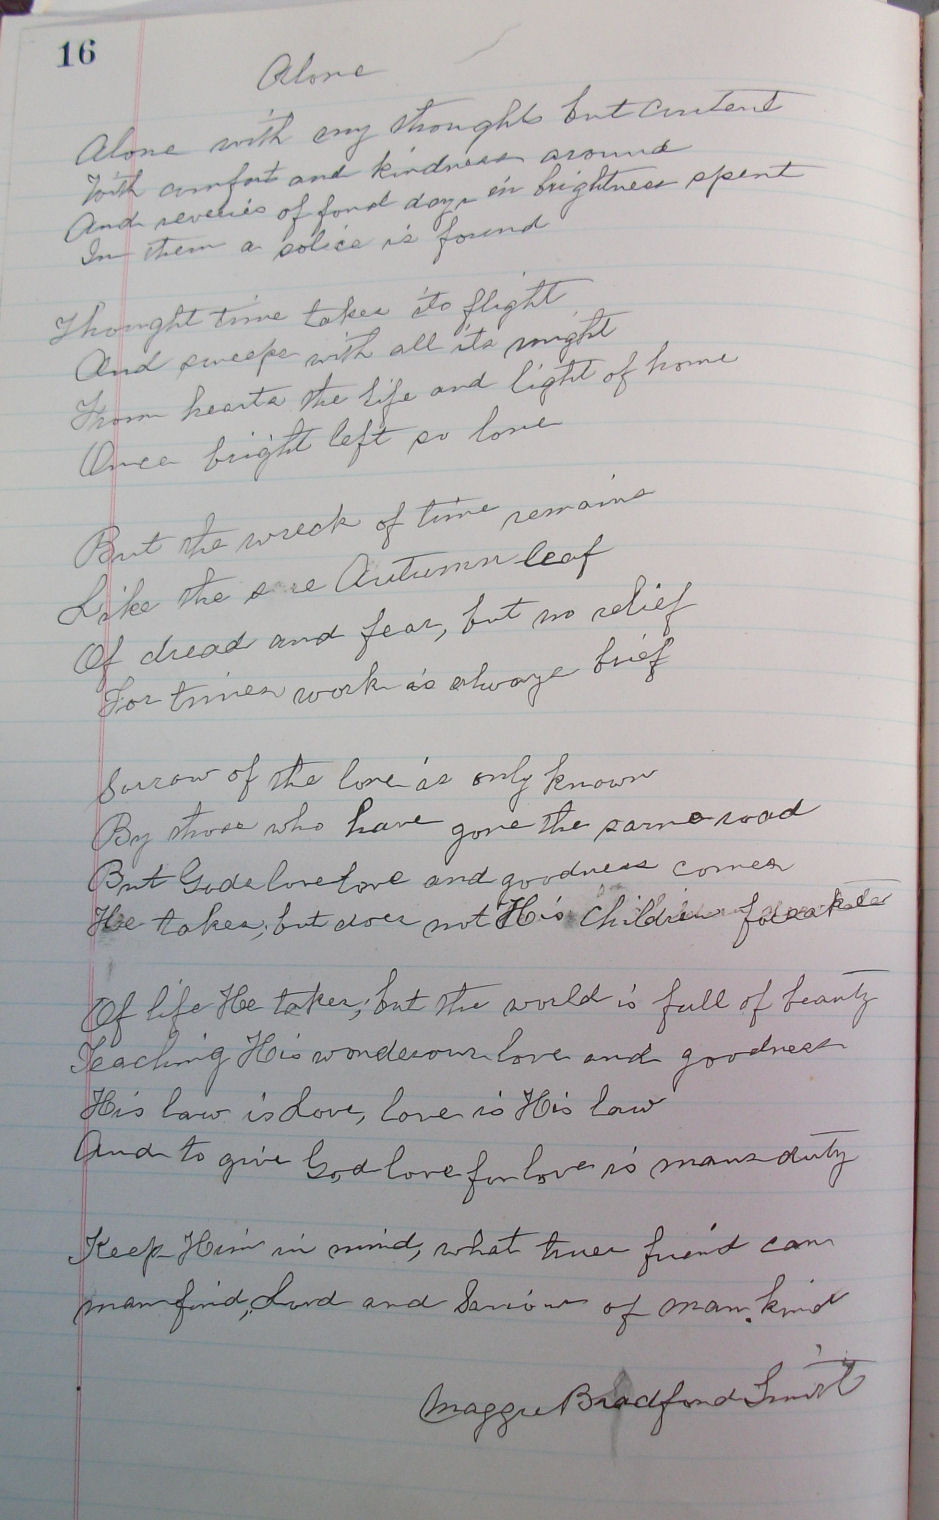 16
Alone
Alone with my thoughts but content
With comfort and kindness around
And reveries of fond days in brightness spent
In them a solice is found
Thought time takes its flight
And sweeps with all its might
From hearts the life and light of home
Once bright left so lone
But the wreck of time remains
Like the sere Autumn leaf
Of dread and fear, but no relief
For times work is always brief
Sorrow of the lone is only known
By those who have gone the same road
But Gods love love and goodness comes
He takes, but does not His children forsake
Of life He takes, but the world is full of beauty
Teaching His wonderous love and goodness
His law is Love, love is His law
And to give God love for love is mans duty
Keep Him in mind, what truer friend can
man find, Lord and Saviour of man.kind
Maggie Bradford Smith